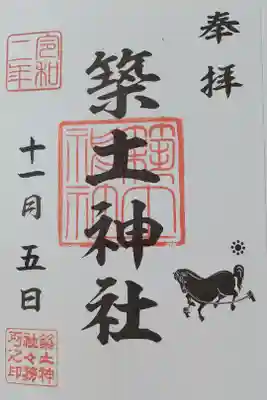 奉拝
築土神社
令和
二年
十一月五日
築土神
社々務
所之印